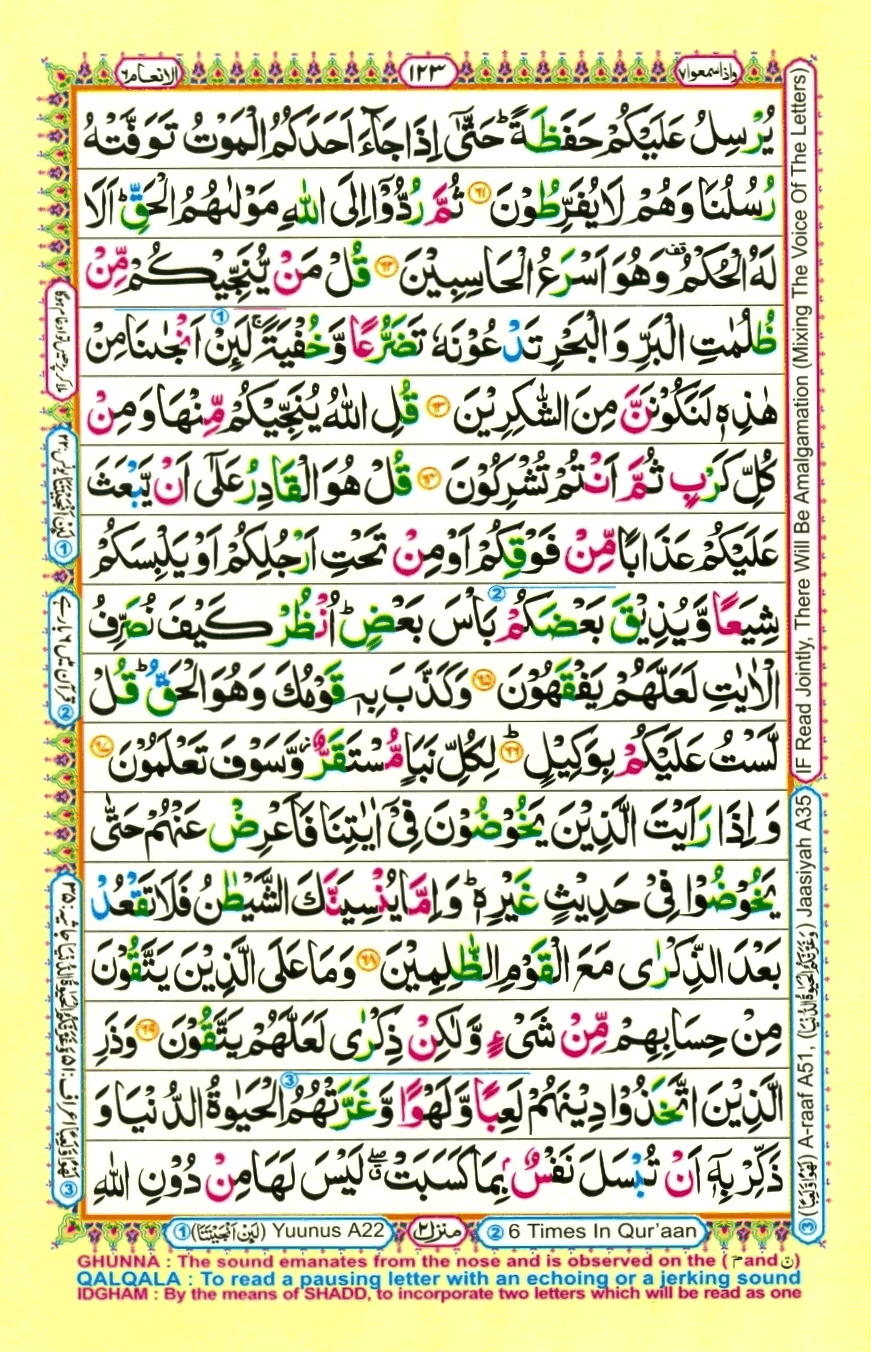 الانعام ٦
١٢٣
واذا سمعوا ٧
يُرْسِلُ عَلَيْكُمْ حَفَظَةً ؕ حَتّٰۤى اِذَا جَآءَ اَحَدَكُمُ الْمَوْتُ تَوَفَّتْهُ
رُسُلُنَا وَهُمْ لَا يُفَرِّطُوْنَ ٦١ ثُمَّ رُدُّوْۤا اِلَى اللّٰهِ مَوْلٰىهُمُ الْحَقِّ ؕ اَلَا
لَهُ الْحُكْمُ ۫ وَهُوَ اَسْرَعُ الْحَاسِبِيْنَ ٦٢ قُلْ مَنْ يُّنَجِّيْكُمْ مِّنْ
ظُلُمٰتِ الْبَرِّ وَالْبَحْرِ تَدْعُوْنَهٗ تَضَرُّعًا وَّخُفْيَةً ۚ لَىِٕنْ اَنْجٰىنَا مِنْ
هٰذِهٖ لَنَكُوْنَنَّ مِنَ الشّٰكِرِيْنَ ٦٣ قُلِ اللّٰهُ يُنَجِّيْكُمْ مِّنْهَا وَمِنْ
كُلِّ كَرْبٍ ثُمَّ اَنْتُمْ تُشْرِكُوْنَ ٦٤ قُلْ هُوَ الْقَادِرُ عَلٰۤى اَنْ يَّبْعَثَ
عَلَيْكُمْ عَذَابًا مِّنْ فَوْقِكُمْ اَوْ مِنْ تَحْتِ اَرْجُلِكُمْ اَوْ يَلْبِسَكُمْ
شِيَعًا وَّيُذِيْقَ بَعْضَكُمْ بَاْسَ بَعْضٍ ؕ اُنْظُرْ كَيْفَ نُصَرِّفُ
الْاٰيٰتِ لَعَلَّهُمْ يَفْقَهُوْنَ ٦٥ وَكَذَّبَ بِهٖ قَوْمُكَ وَهُوَ الْحَقُّ ؕ قُلْ
لَّسْتُ عَلَيْكُمْ بِوَكِيْلٍ ٦٦ لِكُلِّ نَبَاٍ مُّسْتَقَرٌّ ؗ وَّسَوْفَ تَعْلَمُوْنَ ٦٧
وَاِذَا رَاَيْتَ الَّذِيْنَ يَخُوْضُوْنَ فِىْۤ اٰيٰتِنَا فَاَعْرِضْ عَنْهُمْ حَتّٰى
يَخُوْضُوْا فِىْ حَدِيْثٍ غَيْرِهٖ ؕ وَاِمَّا يُنْسِيَنَّكَ الشَّيْطٰنُ فَلَا تَقْعُدْ
بَعْدَ الذِّكْرٰى مَعَ الْقَوْمِ الظّٰلِمِيْنَ ٦٨ وَمَا عَلَى الَّذِيْنَ يَتَّقُوْنَ
مِنْ حِسَابِهِمْ مِّنْ شَىْءٍ وَّلٰكِنْ ذِكْرٰى لَعَلَّهُمْ يَتَّقُوْنَ ٦٩ وَذَرِ
الَّذِيْنَ اتَّخَذُوْا دِيْنَهُمْ لَعِبًا وَّلَهْوًا وَّغَرَّتْهُمُ الْحَيٰوةُ الدُّنْيَا وَ
ذَكِّرْ بِهٖۤ اَنْ تُبْسَلَ نَفْسٌۢ بِمَا كَسَبَتْ ۖ لَيْسَ لَهَا مِنْ دُوْنِ اللّٰهِ
① (لَىِٕنْ اَنْجَيْتَنَا) Yuunus A22
منزل ٢
② 6 Times In Qur'aan
GHUNNA : The sound emanates from the nose and is observed on the (مّ and نّ)
QALQALA : To read a pausing letter with an echoing or a jerking sound
IDGHAM : By the means of SHADD, to incorporate two letters which will be read as one
IF Read Jointly, There Will Be Amalgamation (Mixing The Voice Of The Letters)
③ (لَهْوًا وَّلَعِبًا) A-raaf A51, (وَغَرَّتْكُمُ الْحَيٰوةُ الدُّنْيَا) Jaasiyah A35
① لَىِٕنْ اَنْجَيْتَنَا یونس ٢٢
② قرآن میں ٦ بار ہے
③ لَهْوًا وَّلَعِبًا اعراف: ٥١ وَغَرَّتْكُمُ الْحَيٰوةُ الدُّنْيَا جاثیہ: ٣٥